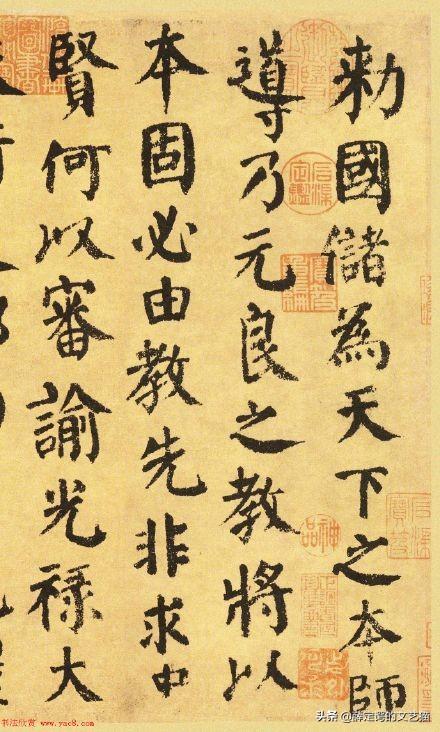 勅國儲為天下之本師
導乃元良之教將以
本固必由教先非求中
賢何以審諭光禄大
神品
书法欣赏 www.yac8.com
头条 @薛定谔的文艺猫